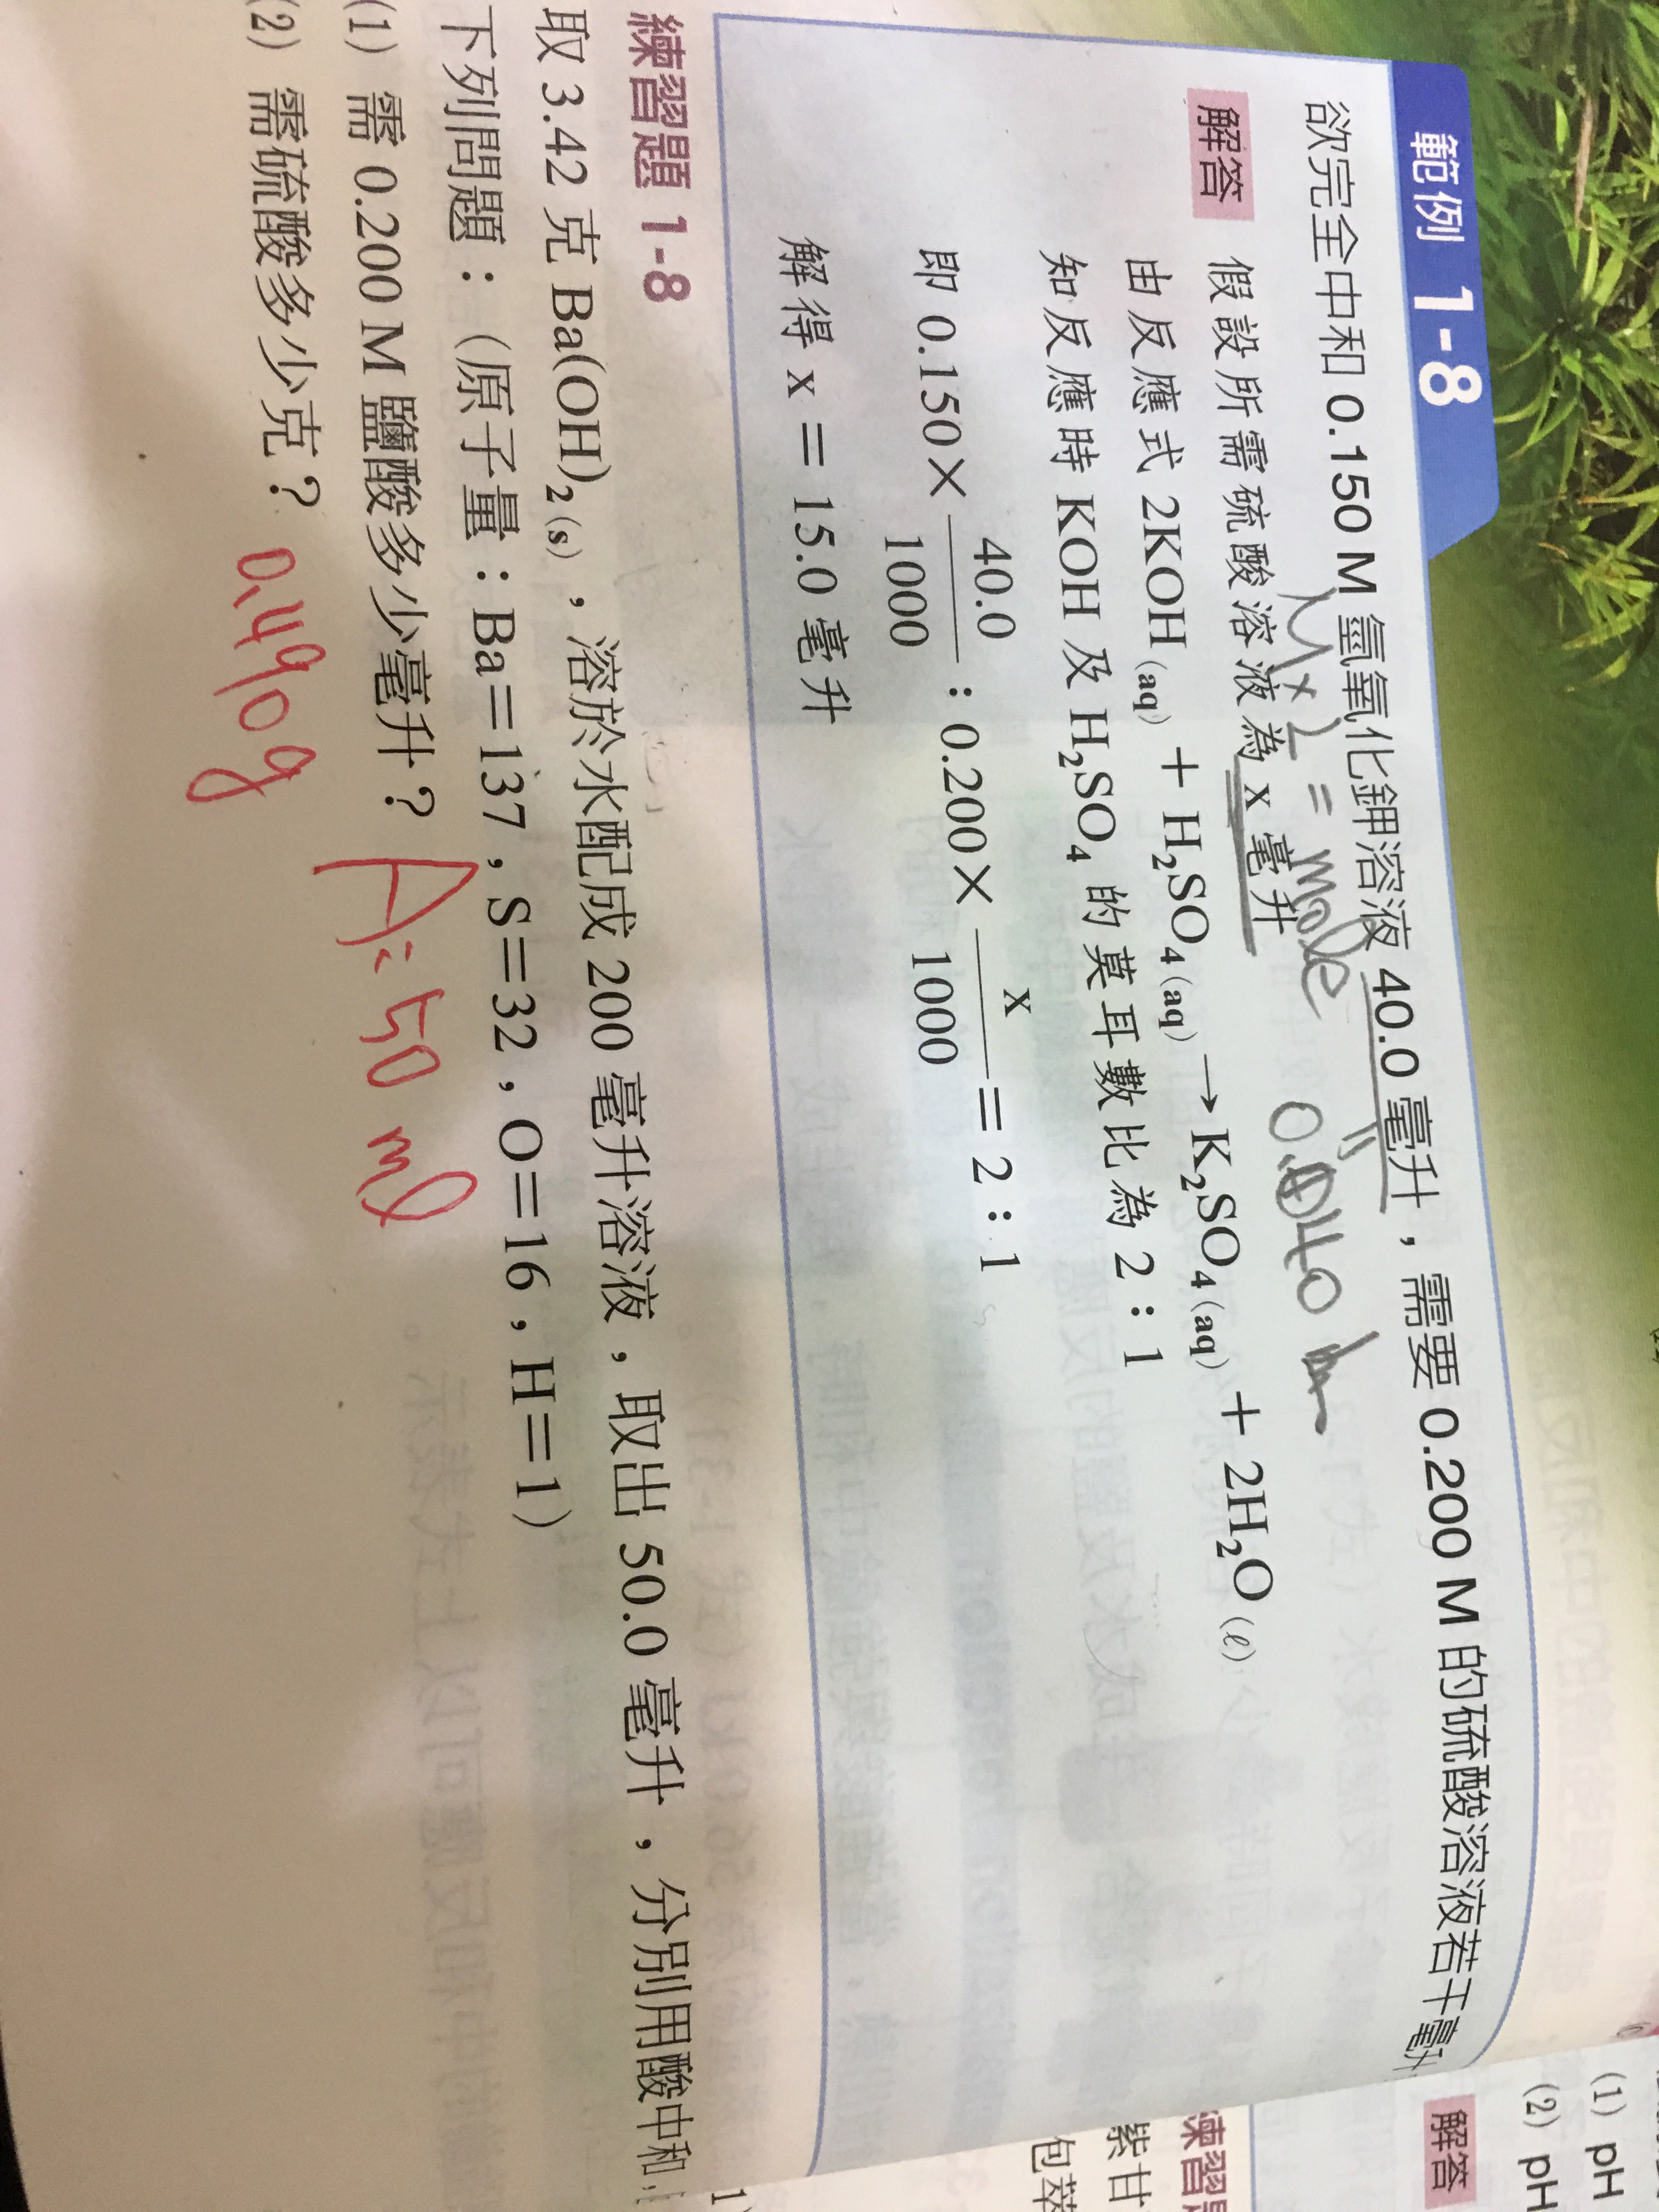 範例 1-8
欲完全中和 0.150 M 氫氧化鉀溶液 40.0 毫升，需要 0.200 M 的硫酸溶液若干毫升
= mole
解答 假設所需硫酸溶液為 x 毫升
由反應式 2KOH(aq) + H₂SO₄(aq) → K₂SO₄(aq) + 2H₂O(ℓ)
知反應時 KOH 及 H₂SO₄ 的莫耳數比為 2：1
即 0.150 × 40.0/1000 : 0.200 × x/1000 = 2 : 1
解得 x = 15.0 毫升
練習題 1-8
取 3.42 克 Ba(OH)₂(s)，溶於水配成 200 毫升溶液，取出 50.0 毫升，分別用酸中和
下列問題：（原子量：Ba=137，S=32，O=16，H=1）
(1) 需 0.200 M 鹽酸多少毫升？ A: 50 ml
(2) 需硫酸多少克？ 0.490g
(1) pH
(2) pH
解答
練習題
紫甘
包萃